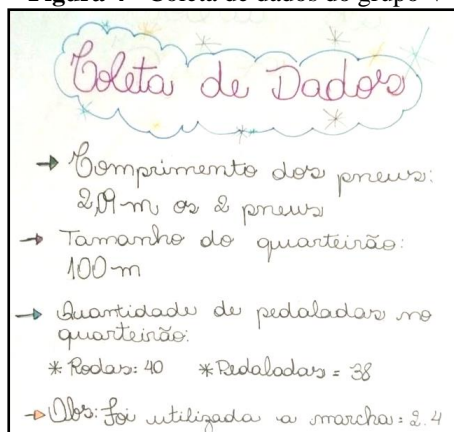 Figura 4 - Coleta de dados do grupo
Coleta de Dados
→ Comprimento dos pneus:
2,09 m os 2 pneus
→ Tamanho do quarteirão:
100 m
→ Quantidade de pedaladas no
quarteirão:
* Rodas: 40 * Pedaladas = 38
→ Obs: foi utilizada a marcha: 2.4